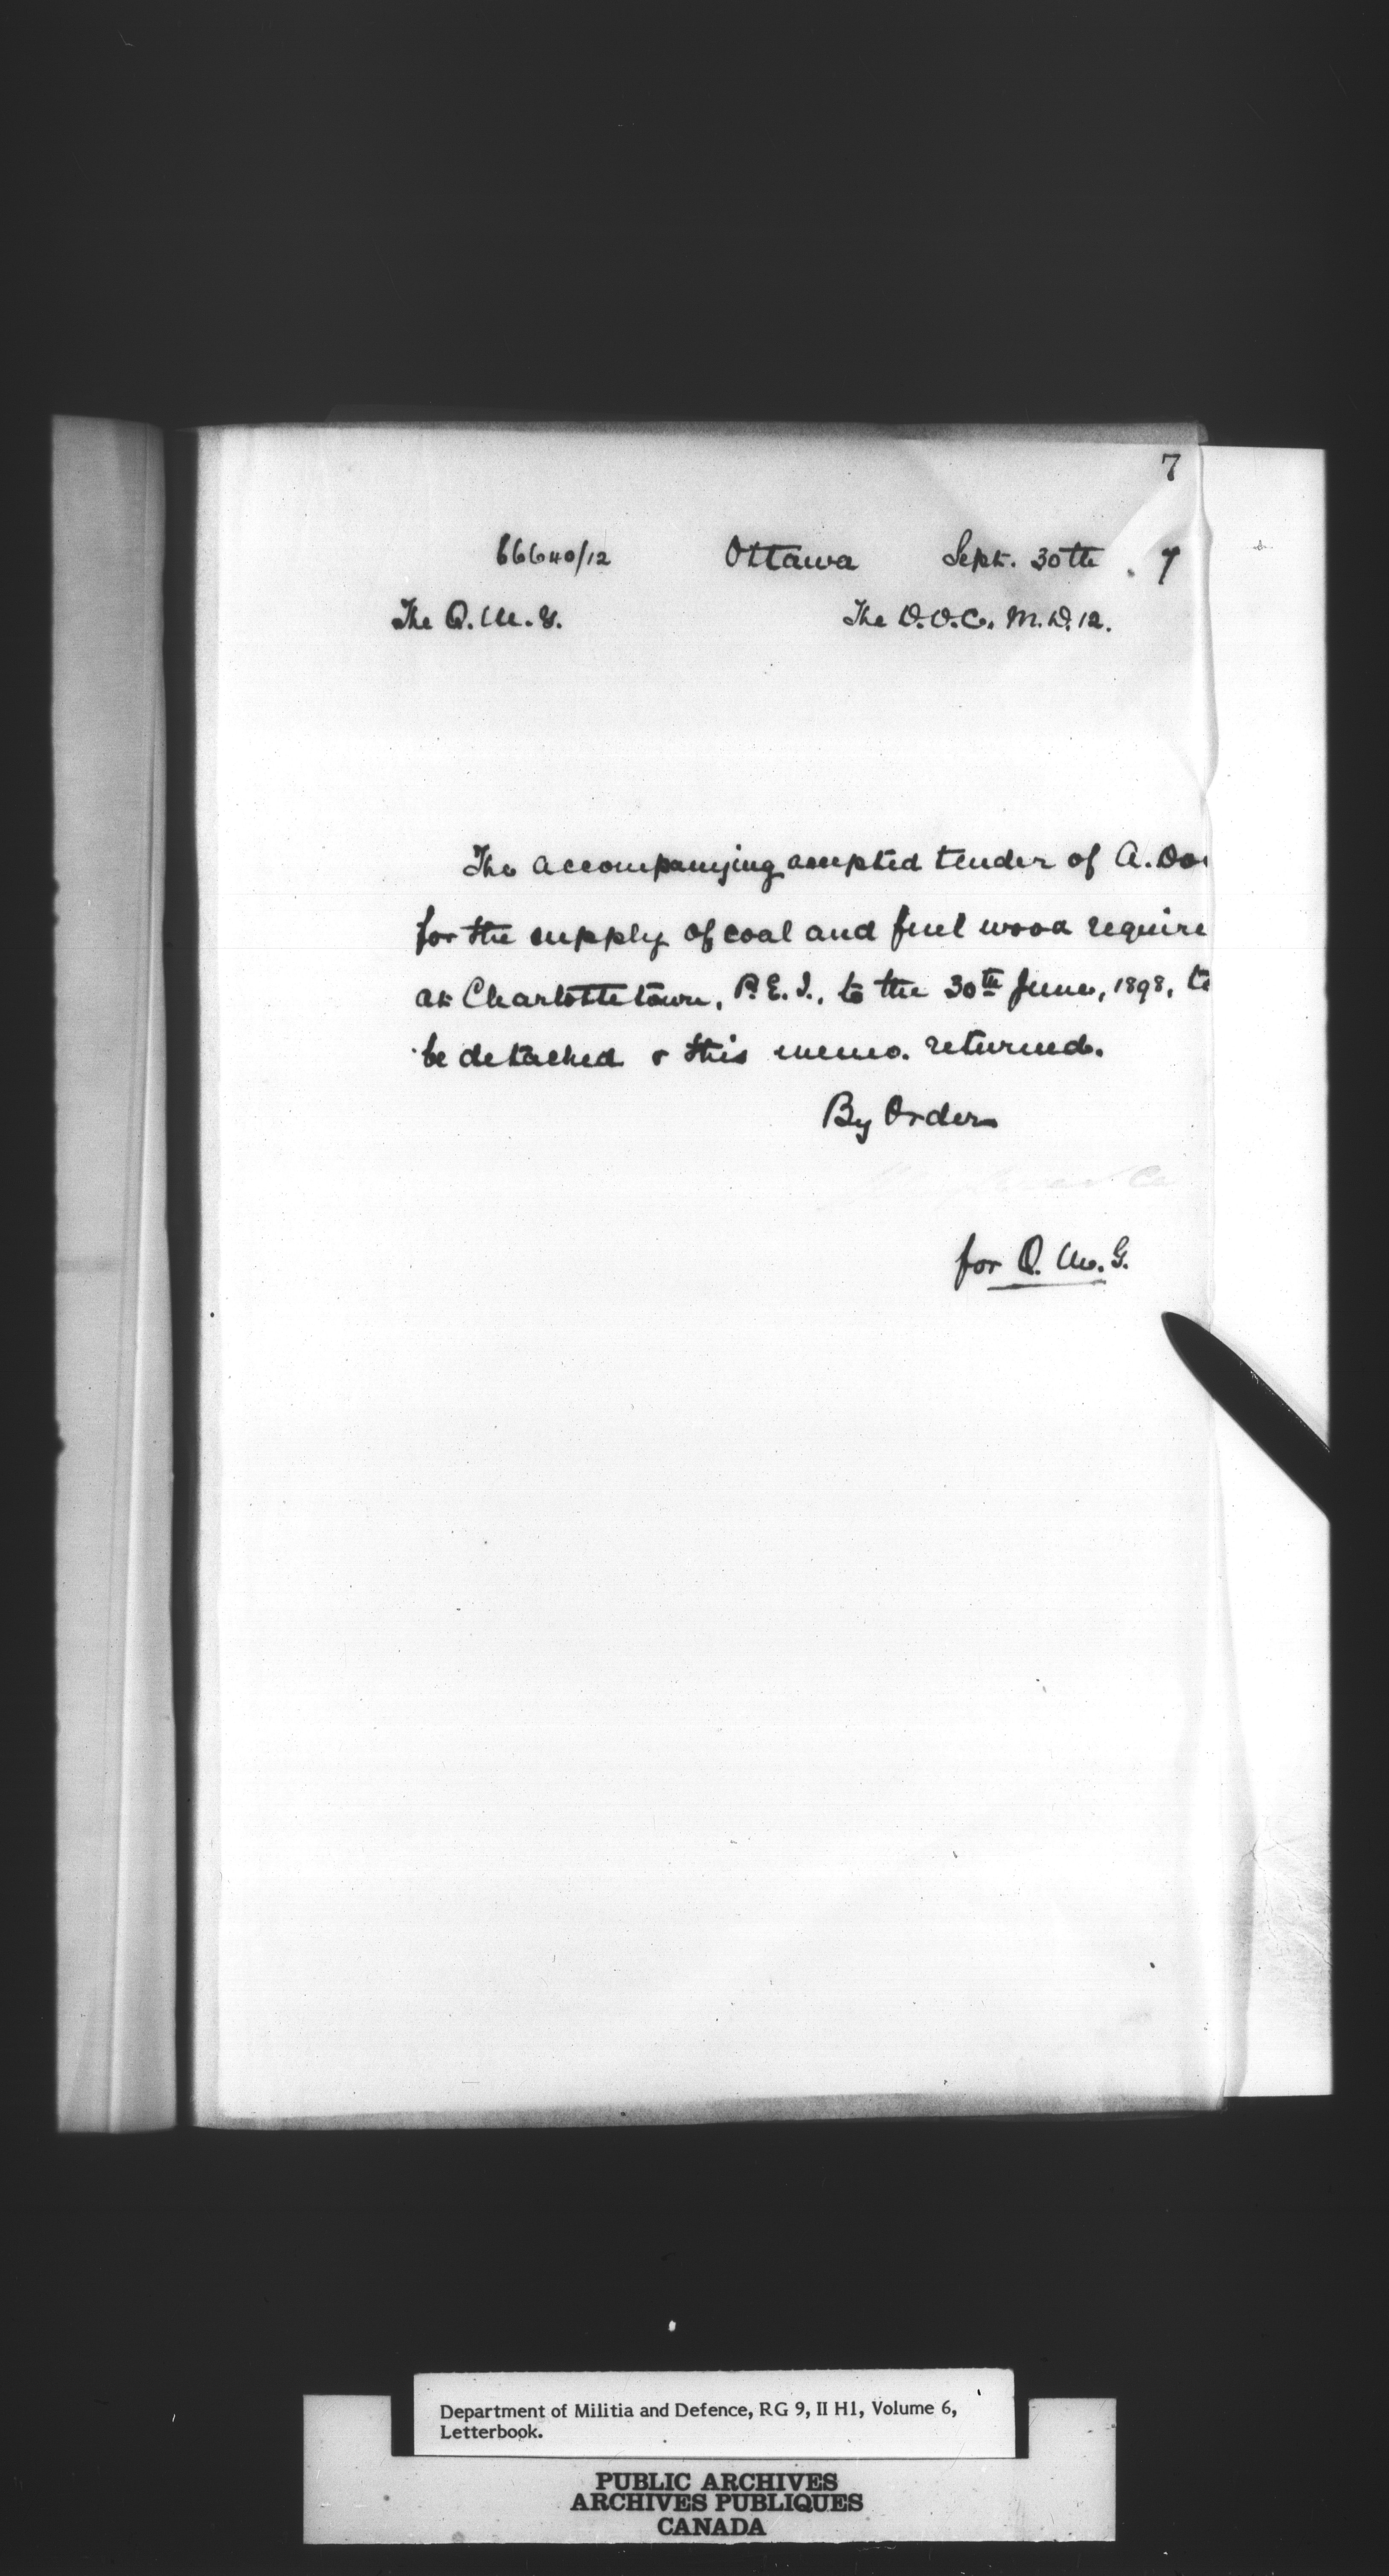 7
66640/12 Ottawa Sept. 30th . 7
The Q.M.G. The D.O.C. M.D. 12.
The accompanying accepted tender of A. Do
for the supply of coal and fuel wood require
at Charlottetown, P.E.I., to the 30th June, 1898, to
be detached & this memo. returned.
By Order
for Q.M.G.
Department of Militia and Defence, RG 9, II H1, Volume 6,
Letterbook.
PUBLIC ARCHIVES
ARCHIVES PUBLIQUES
CANADA